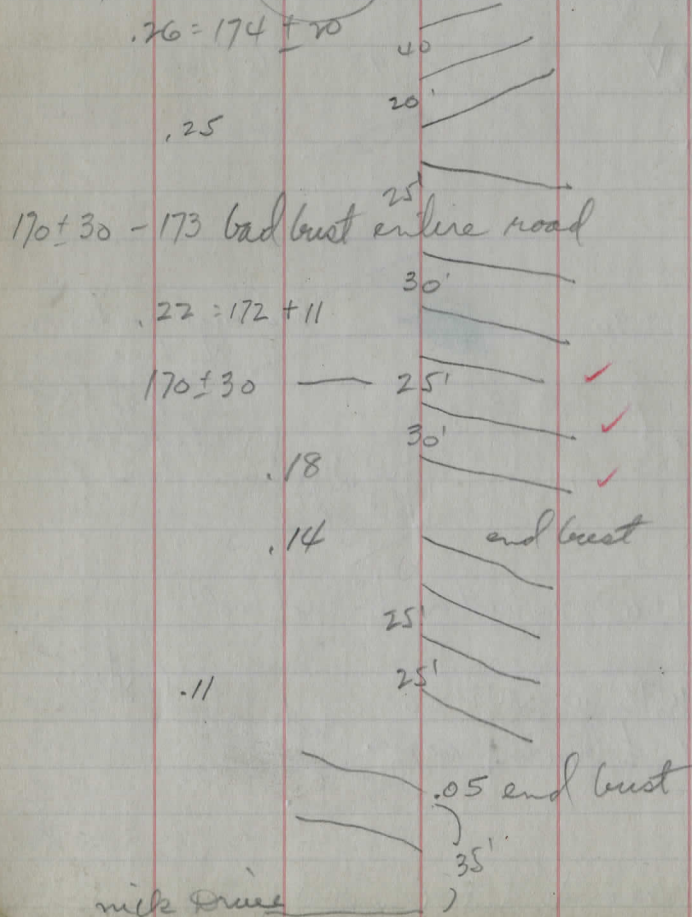 .26 = 174 ± 20
40
20'
.25
25'
170 ± 30 - 173 bad bust entire road
30'
.22 = 172 + 11
170 ± 30 — 25'
30'
.18
.14 end bust
25'
25'
.11
.05 end bust
35'
nick Drive